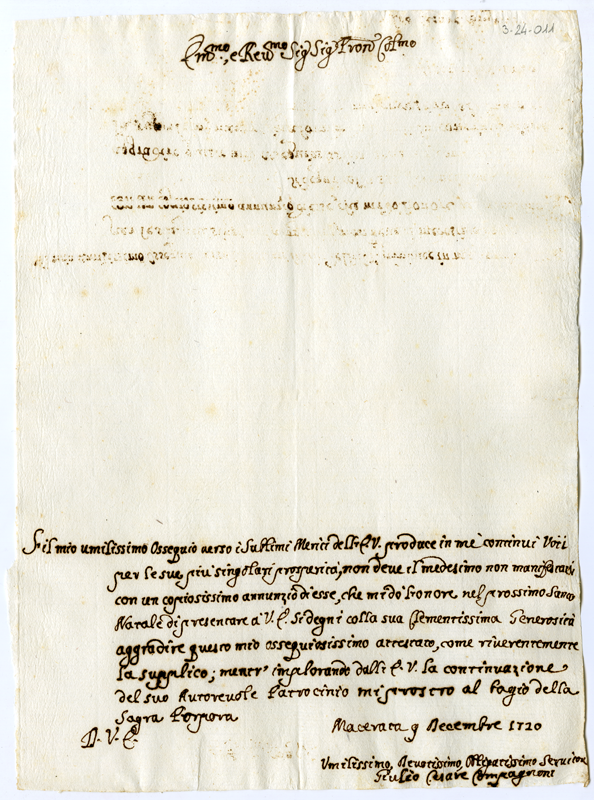 3-24-011
Em.mo, e Reu.mo Sig.r Sig.r Pron Col.mo
Se il mio umilissimo Ossequio verso i Sublimi Meriti dell'E.V. produce in me continui Voti
per le sue più singolari prosperità, non deve il medesimo non manifestarsi
con un copiosissimo annunzio di esse, che mi do l'onore nel prossimo Santo
Natale di presentare a V.E. Si degni colla sua Clementissima Generosità
aggradire questo mio ossequiosissimo attestato, come riverentemente
la supplico; mentr' implorando dall' E.V. la continuazione
del suo Autorevole Patrocinio mi prostro al bagio della
Sagra Porpora
Macerata 9 Decembre 1720
D. V. E.
Umilissimo, Devotissimo, Obligatissimo Servitor
Giulio Cesare Compagnoni